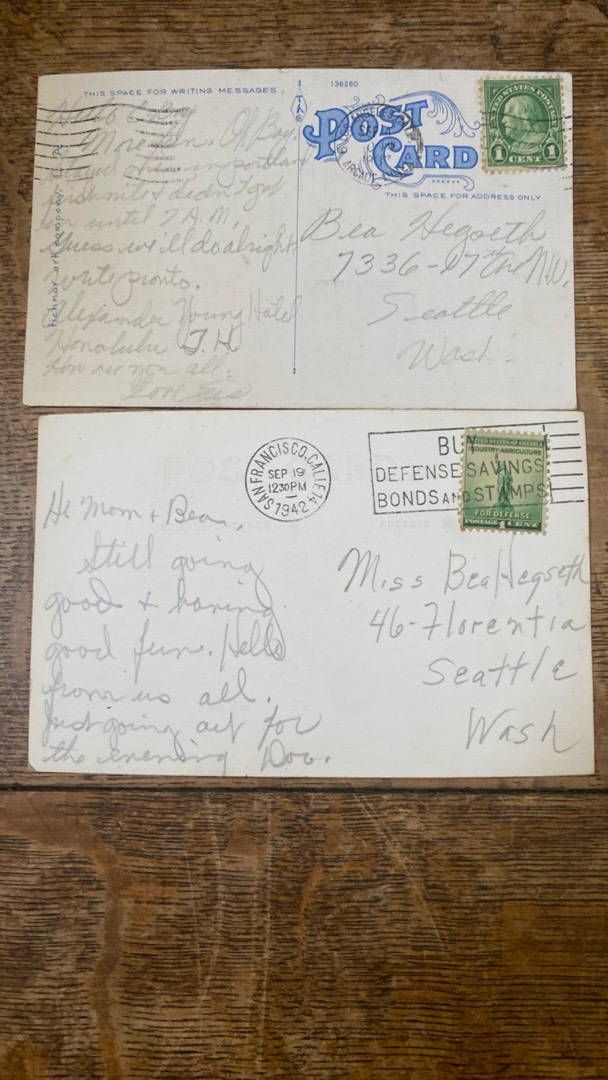 THIS SPACE FOR WRITING MESSAGES
136260
POST CARD
THIS SPACE FOR ADDRESS ONLY
UNITED STATES POSTAGE
1 CENT 1
in until 7 A.M.
Guess we'll do alright.
write pronto.
Alexander Young Hotel
Honolulu T.H.
you all.
Love
Bea Hegseth
7336-17th Ave N.W.
Seattle
Wash.
SAN FRANCISCO, CALIF.
SEP 19
1230 PM
1942
BUY
DEFENSE SAVINGS
BONDS AND STAMPS
UNITED STATES OF AMERICA
INDUSTRY-AGRICULTURE
FOR DEFENSE
POSTAGE 1 CENT
Hi Mom + Bea,
Still going
good + having
good fun. Hello
from us all.
Just going out for
the evening
Miss Bea Hegseth
46-Florentia
Seattle
Wash